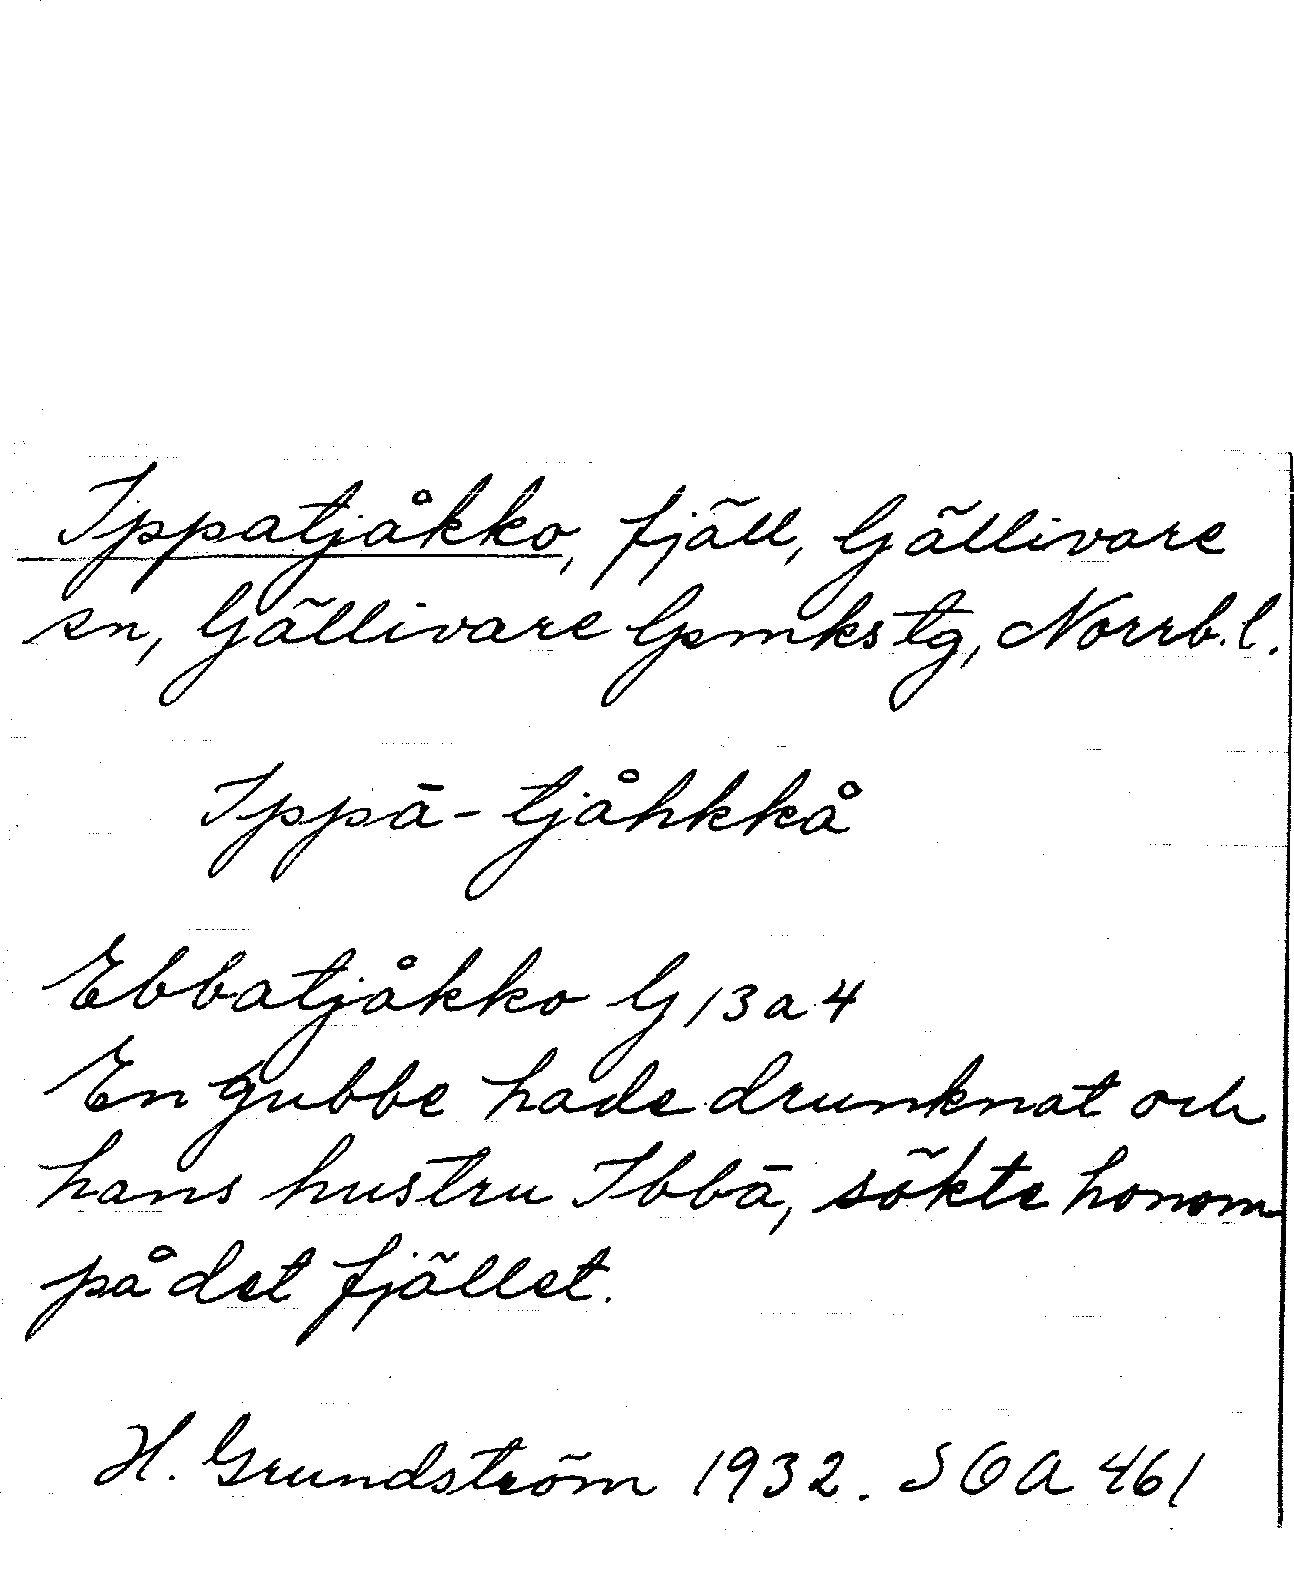 Ippatjåkko, fjäll, Gällivare
sn, Gällivare lpmkstg, Norrb. l.
Ippā-tjåhkkå
Ebbatjåkko G13a4
En gubbe hade drunknat och
hans hustru Ibbā, sökte honom
på det fjället.
H. Grundström 1932. SOA 461